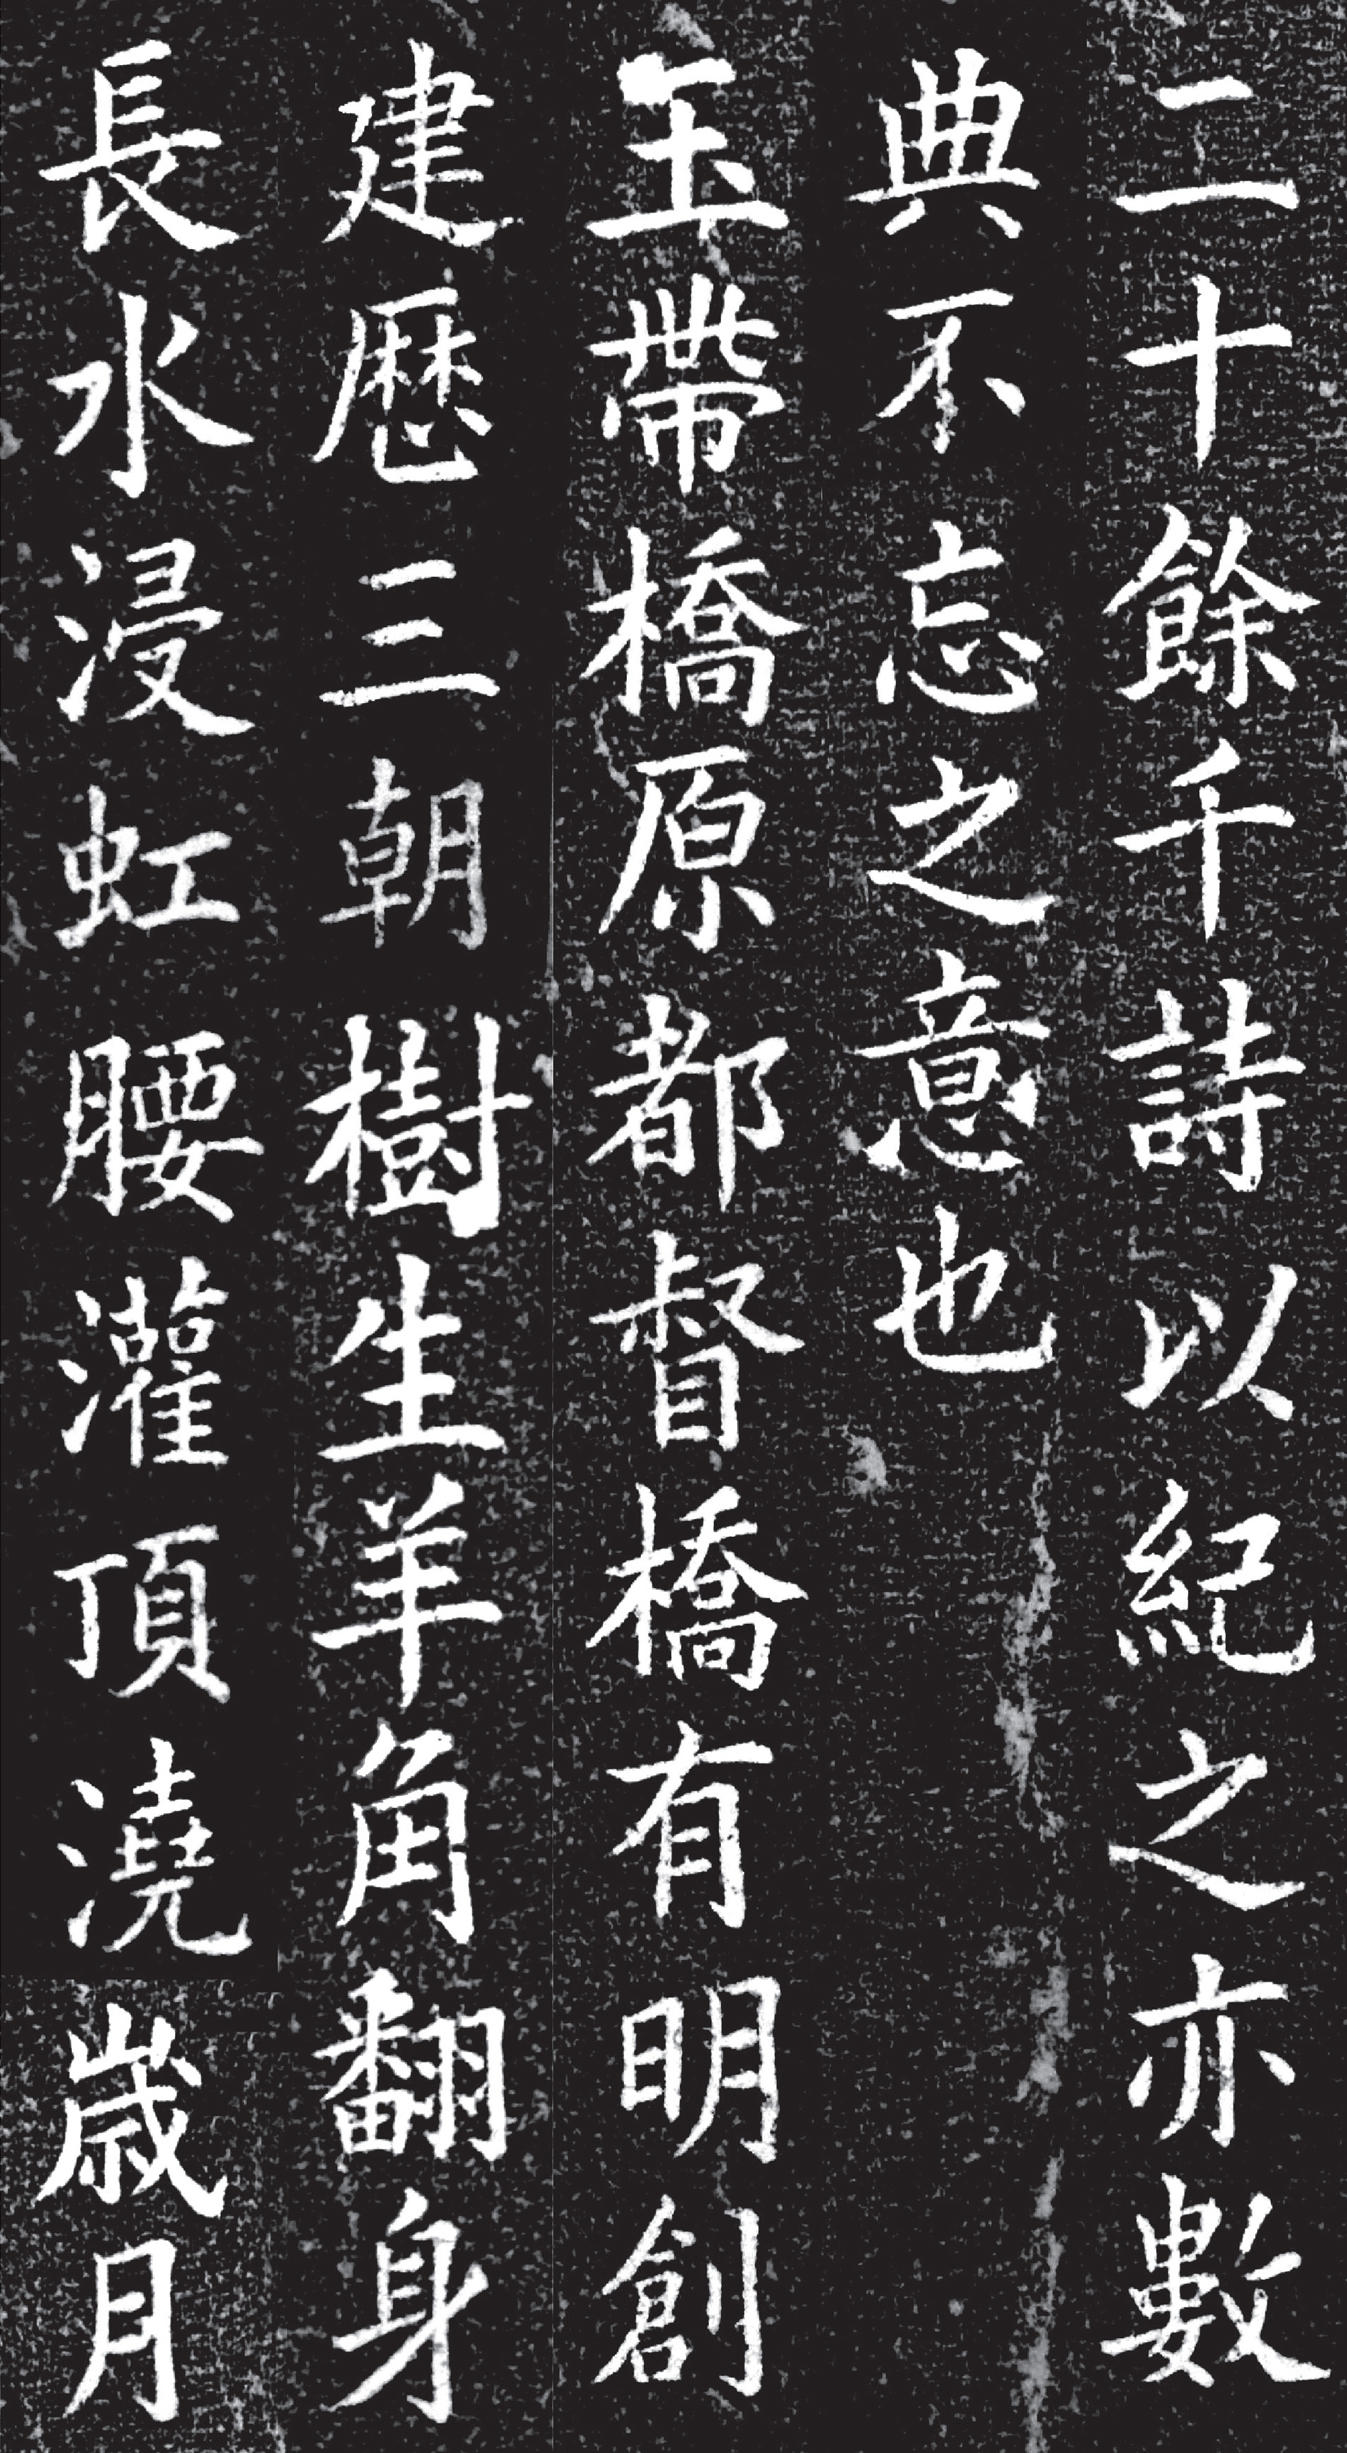 二十餘千詩以紀之亦數
典不忘之意也
玉帶橋原都督橋有明創
建歷三朝樹生羊角翻身
長水浸虹腰灌頂澆歲月